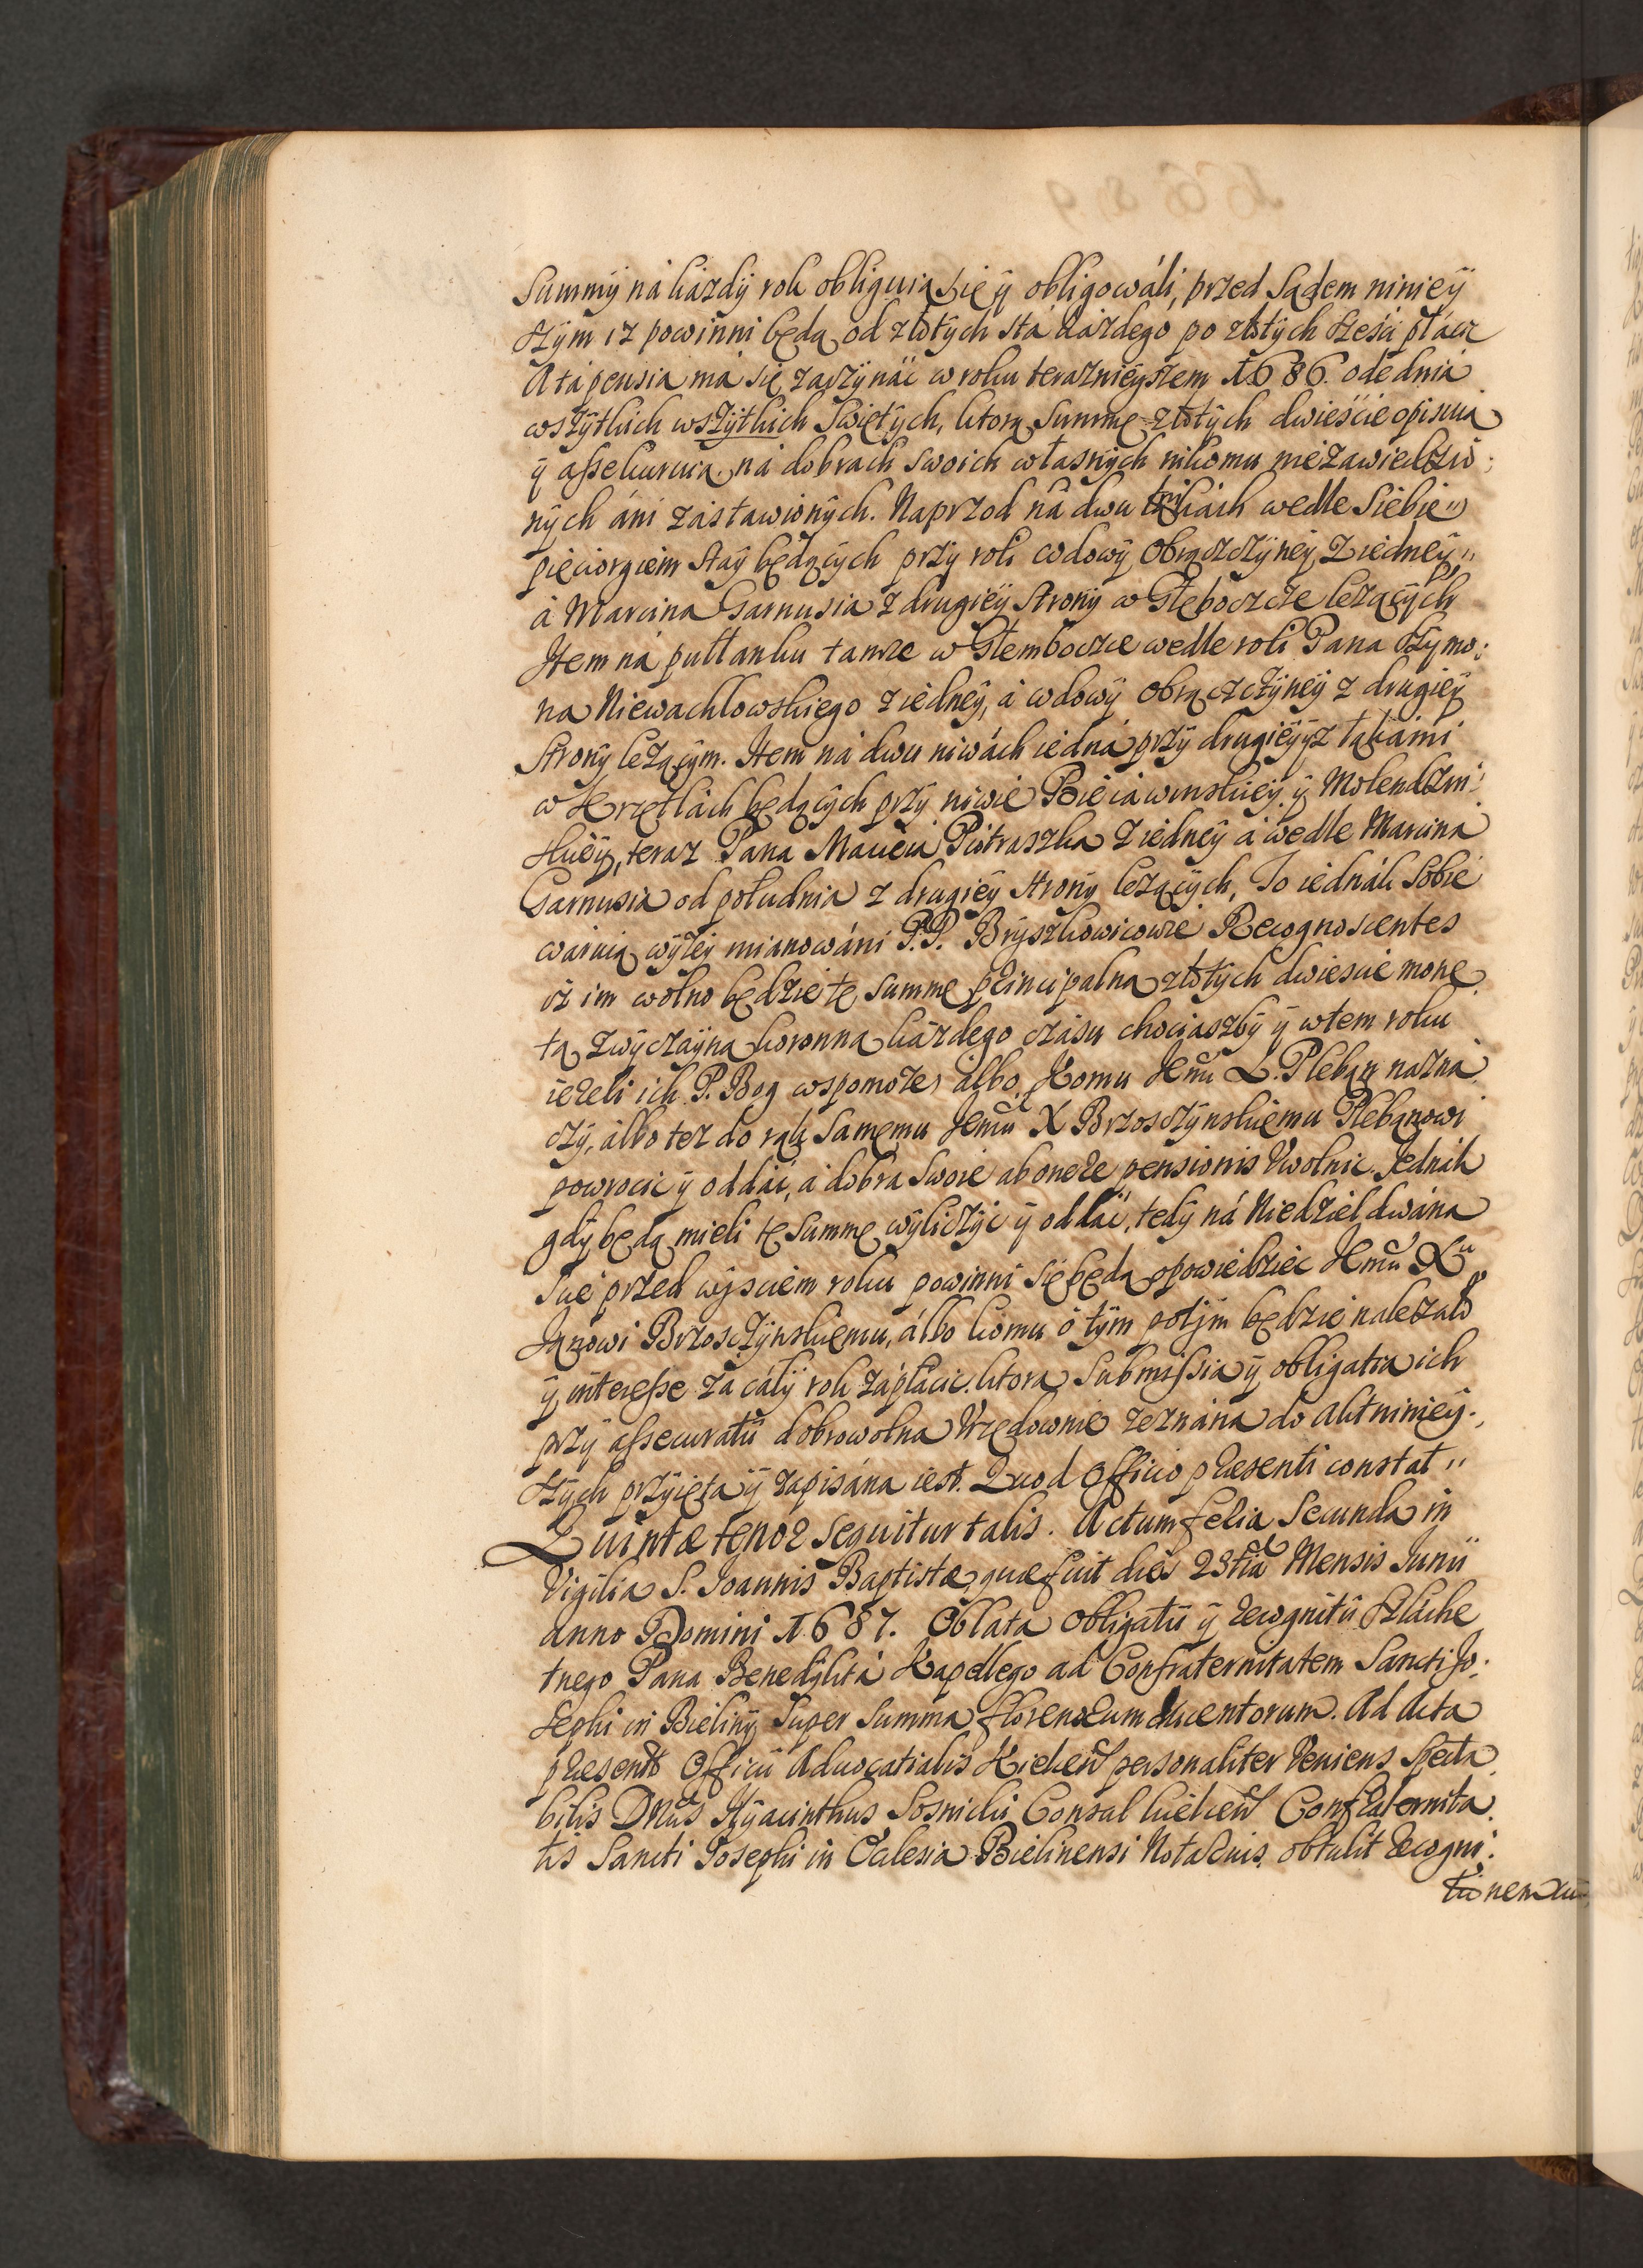 Summy ná káżdy rok obliguią się ÿ obligowáli, przed Sądem niniey
szym iż powinni będą od złotych stá káżdego po złotych sześć płácić
A tá pensia má się zaczÿnáć w roku teraznieÿszem 1686. ode dniá
wszytkich wszÿtkich Swiętych, ktorą Summę złotych dwieście opisuią
ÿ assekuruią ná dobrach swoich własnych nikomu niezawiedzio:
nych áni zastawionych. Naprzod ná dwu łąkách wedle Siebie"
pięciorgiem staÿ będących przÿ roli wdowÿ Obrączczÿneÿ z iedneÿ"
á Marcina Garnusia z drugieÿ strony w Głęboczce leżących
Item ná pułłanku tamże w Głemboczce wedle roli Pana Szymo:
na Niewachlowskiego z iedneÿ, á wdowÿ Obrączczÿneÿ z drugieÿ
strony leżącym. Item ná dwu niwách iedná przÿ drugieÿ ÿ z łąkámi
w Krzetlách będących przÿ niwie Bieciawinskieÿ ÿ Molendziń:
skieÿ, teraz Pana Macieia Piotraszka z iedneÿ á wedle Marcina
Garnusia od południa z drugieÿ strony leżących, To iednák Sobie
waruią wÿżeÿ mianowáni P.P. Bryszkowicowie Recognoscentes
iż im wolno będzie tę Summę principalną złotych dwieście mone
tą zwÿczaÿną koronną káżdego czásu chociaszbÿ ÿ wtem roku
ieżeli ich P. Bog wspomoże, álbo komu Jemu X. Pleban názná
czÿ, álbo też do rąk Samemu Jemu X Brzosczÿnskiemu Plebanowi
powrocić ÿ oddáć, á dobra Swoie ab onere pensionis Uwolnić. Jednák
gdÿ będą mieli tę Summę wÿliczÿć ÿ oddáć, tedÿ ná Niedziel dwána
ście przed wyściem roku powinni się będą opowiedzieć Jemu Xu
Janowi Brzosczÿnskiemu, álbo komu o tÿm potÿm będzie należało
ÿ interesse zá cáłÿ rok zápłácić. ktora Submissia ÿ obligatia ich
przÿ assecuratii dobrowolna Urzędownie zeznána do Akt nineÿ:
szych przÿięta ÿ zapisána iest. Quod Officio præsenti constat"
Quintæ tenor sequitur talis. Actum feria Secunda in
Vigilia S. Joannis Baptistæ quæ fuit dies 23tia Mensis Junii
anno Domini 1687. Oblata obligatii ÿ recognitii Szláche
tnego Pana Benedÿktá Kapellego ad Confraternitatem Sancti Jo:
sephi in Bielinÿ Super Summa florenorum ducentorum. Ad Acta
præsentis Officii Advocatialis Kielcen̄ personaliter Veniens Specta
bilis Dnus Hÿacinthus Sosnicki Consul kielcen̄ Confraternita
tis Sancti Josephi in Ecclesia Bielinensi Notarius, obtulit recogni:
tionem cum